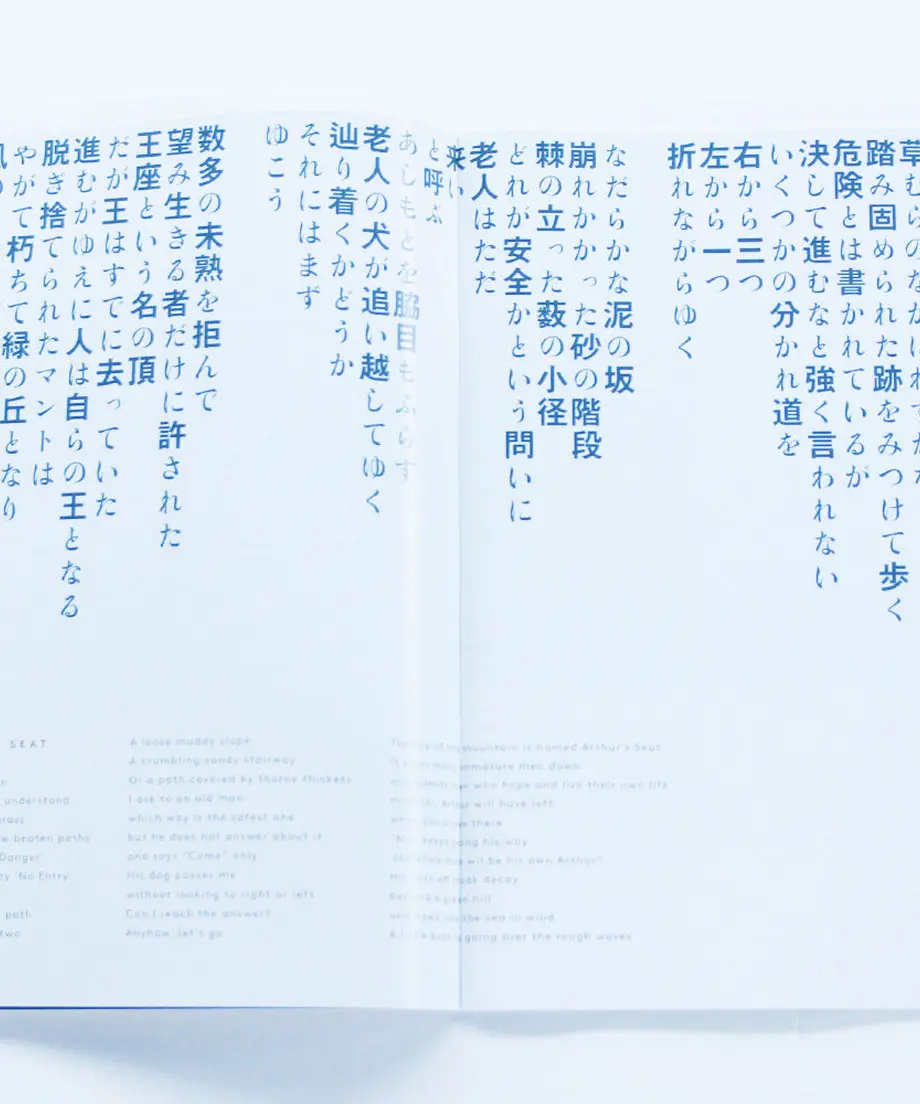 踏み固められた跡をみつけて歩く
危険とは書かれているが
決して進むなと強く言われない
いくつかの分かれ道を
右から三つ
左から一つ
折れながらゆく
なだらかな泥の坂
崩れかかった砂の階段
棘の立った薮の小径
どれが安全かという問いに
老人はただ
来い
と呼ぶ
あしもとを脇目もふらす
老人の犬が追い越してゆく
辿り着くかどうか
それにはまず
ゆこう
数多の未熟を拒んで
望み生きる者だけに許された
王座という名の頂
だが王はすでに去っていた
進むがゆえに人は自らの王となる
脱ぎ捨てられたマントは
やがて朽ちて緑の丘となり
SEAT
understand
beaten paths
Danger
'No Entry
path
two
A loose muddy slope
A crumbling sandy stairway
Or a path covered by thorny thickets
I ask to an old man
which way is the safest one
but he does not answer about it
and says "Come" only
His dog passes me
without looking to right or left
Can I reach the answer?
Anyhow, let's go
mountain is named Arthur's Seat
immature men down
who hope and live their own life
will have left
there
his way
be his own Arthur"
decay
hill
the sea in wind
going over the rough waves